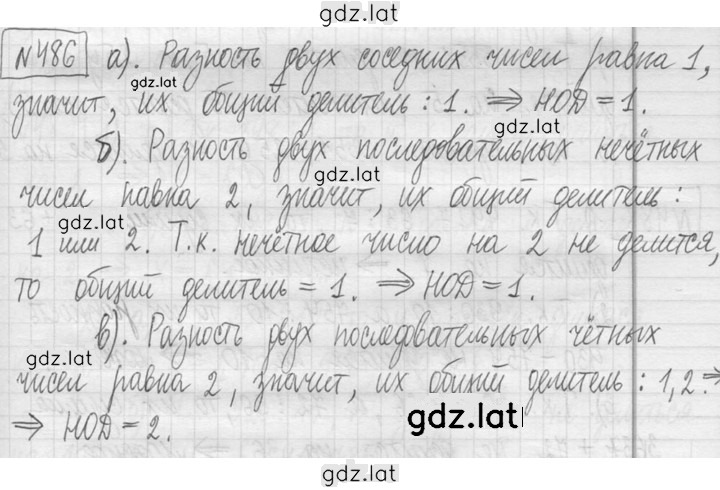 gdz.lat
№486 а). Разность двух соседних чисел равна 1,
gdz.lat
значит, их общий делитель: 1. ⇒ НОД = 1.
gdz.lat
б). Разность двух последовательных нечётных
gdz.lat
чисел равна 2, значит, их общий делитель:
gdz.lat
1 или 2. Т.к. нечётное число на 2 не делится,
то общий делитель = 1. ⇒ НОД = 1.
в). Разность двух последовательных чётных
gdz.lat
чисел равна 2, значит, их общий делитель: 1, 2. ⇒
gdz.lat
⇒ НОД = 2.
gdz.lat